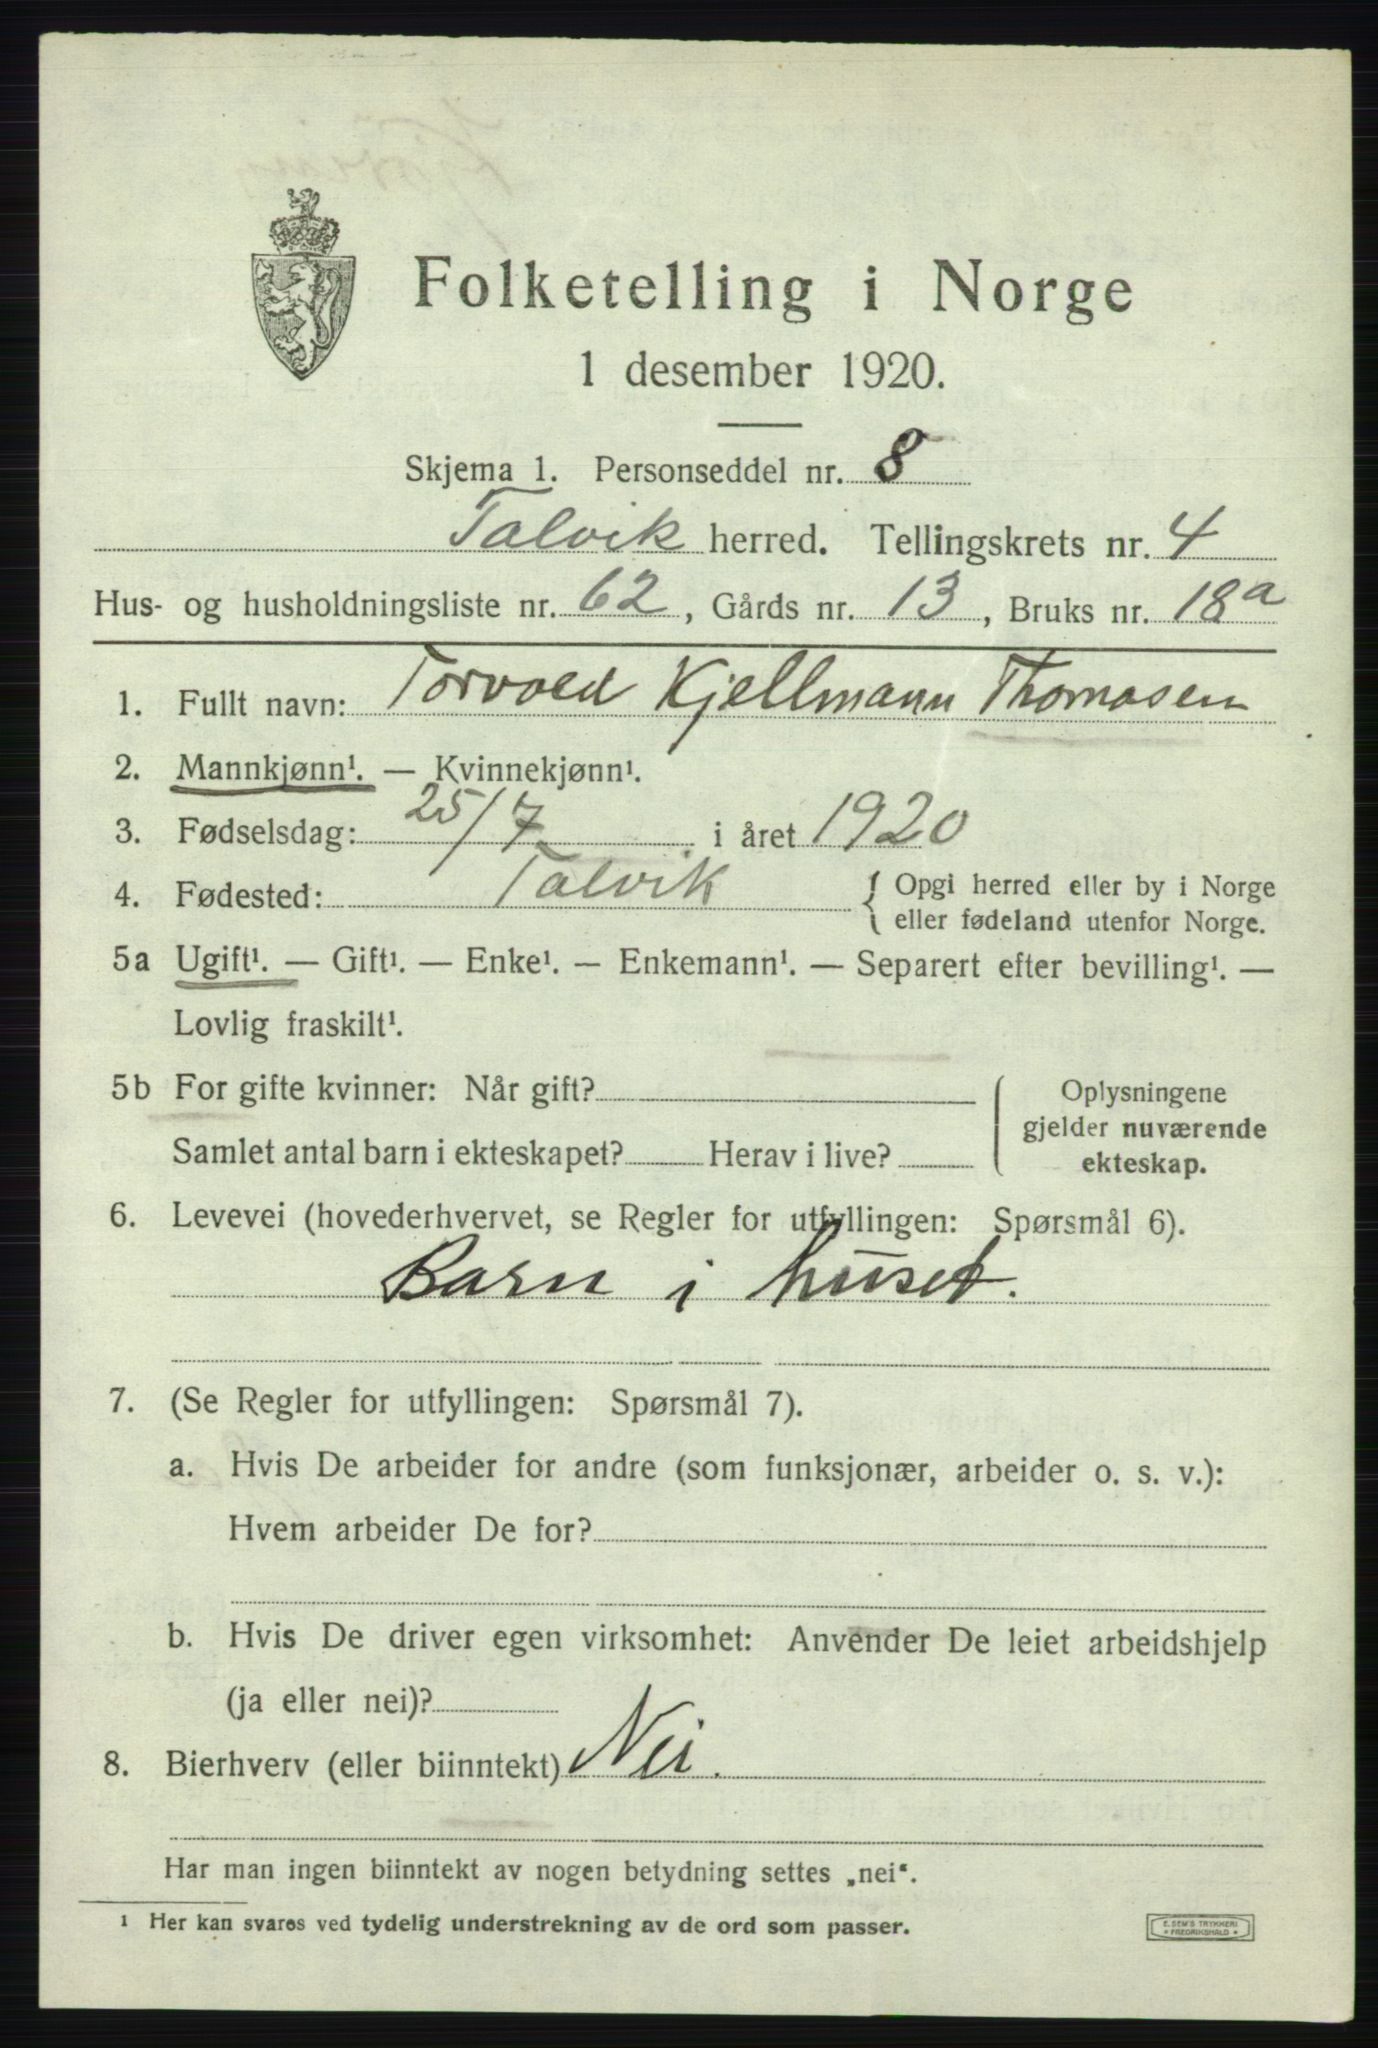 Folketelling i Norge
1 desember 1920.
Skjema 1. Personseddel nr. 8
Talvik herred. Tellingskrets nr. 4
Hus- og husholdningsliste nr. 62, Gårds nr. 13, Bruks nr. 18a
1. Fullt navn: Torvald Kjellmann Thomasen
2. Mannkjønn¹. — Kvinnekjønn¹.
3. Fødselsdag: 25/7 i året 1920
4. Fødested: Talvik { Opgi herred eller by i Norge
eller fødeland utenfor Norge.
5a Ugift¹. — Gift¹. — Enke¹. — Enkemann¹. — Separert efter bevilling¹. —
Lovlig fraskilt¹.
5b For gifte kvinner: Når gift?
Samlet antal barn i ekteskapet? Herav i live?
Oplysningene
gjelder nuværende
ekteskap.
6. Levevei (hovederhvervet, se Regler for utfyllingen: Spørsmål 6).
Barn i huset.
7. (Se Regler for utfyllingen: Spørsmål 7).
a. Hvis De arbeider for andre (som funksjonær, arbeider o. s. v.):
Hvem arbeider De for?
b. Hvis De driver egen virksomhet: Anvender De leiet arbeidshjelp
(ja eller nei)?
8. Bierhverv (eller biinntekt) Nei.
Har man ingen biinntekt av nogen betydning settes „nei“.
¹ Her kan svares ved tydelig understrekning av de ord som passer.
E. SEM'S TRYKKERI
* FREDRIKSHALD *